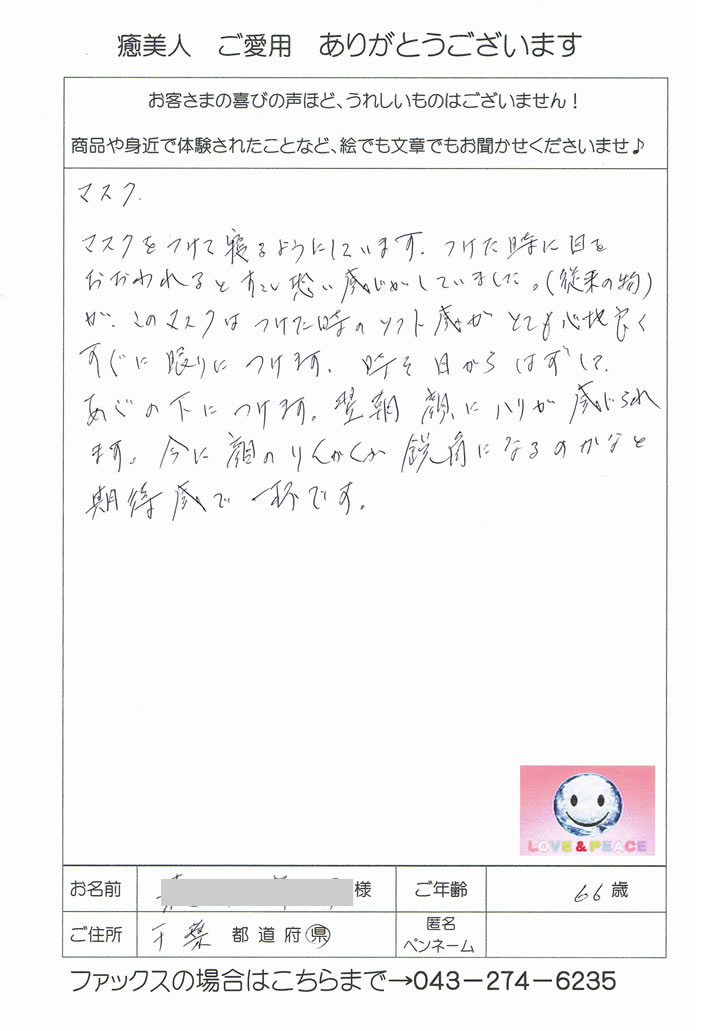 癒美人 ご愛用 ありがとうございます
お客さまの喜びの声ほど、うれしいものはございません！
商品や身近で体験されたことなど、絵でも文章でもお聞かせくださいませ♪
マスク.
マスクをつけて寝るようにしています. つけた時に目を
おおわれるとすこし恐い感じがしていました。(従来の物)
が、このマスクはつけた時のソフト感がとても心地良く
すぐに眠りにつけます. 時々目からはずして、
あごの下につけます。翌朝 顔にハリが感じられ
ます。今に顔のりんかくが鋭角になるのかなと
期待感で一杯です。
LOVE & PEACE
お名前 様 ご年齢 66歳
ご住所 千葉 都道府県 匿名
ペンネーム
ファックスの場合はこちらまで→043-274-6235